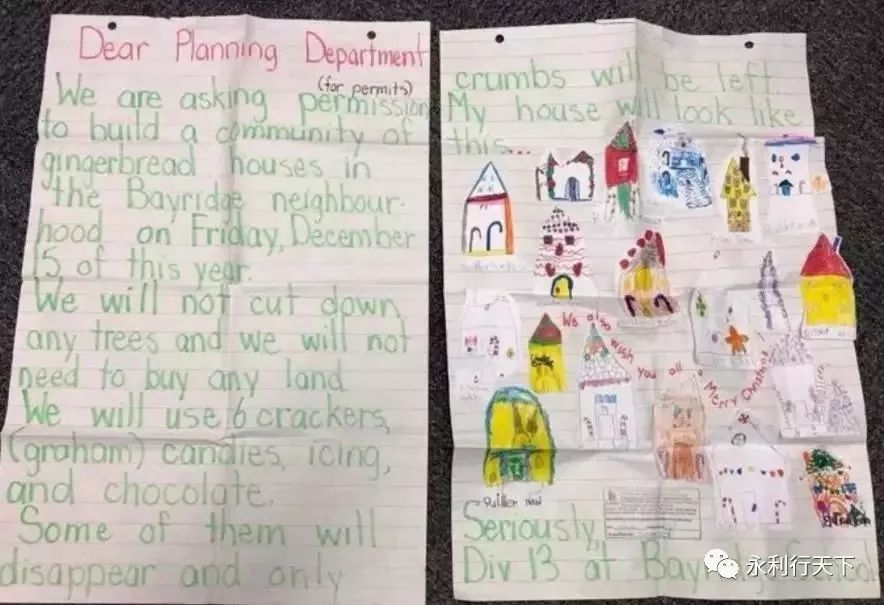 Dear Planning Department
(for permits)
We are asking permission
to build a community of
gingerbread houses in
the Bayridge neighbour-
hood on Friday, December
15 of this year.
We will not cut down
any trees and we will not
need to buy any land
We will use 6 crackers,
(graham) candies, icing,
and chocolate.
Some of them will
disappear and only
crumbs will be left
My house will look like
this...
We also
wish
you all
Merry Christmas
Seriously,
Div 13 at
永利行天下